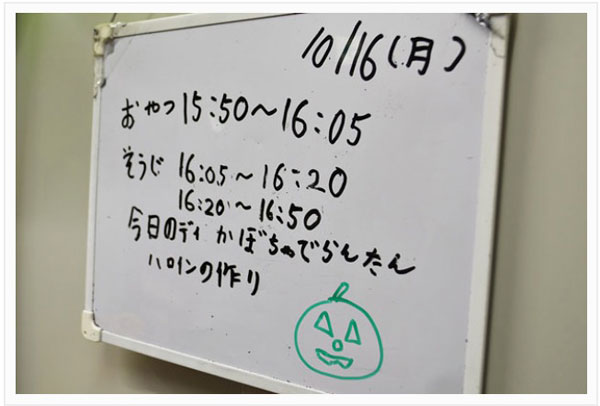 10/16(月)
おやつ 15:50～16:05
そうじ 16:05～16:20
16:20～16:50
今日のディ かぼちゃでらんたん
ハロインの作り